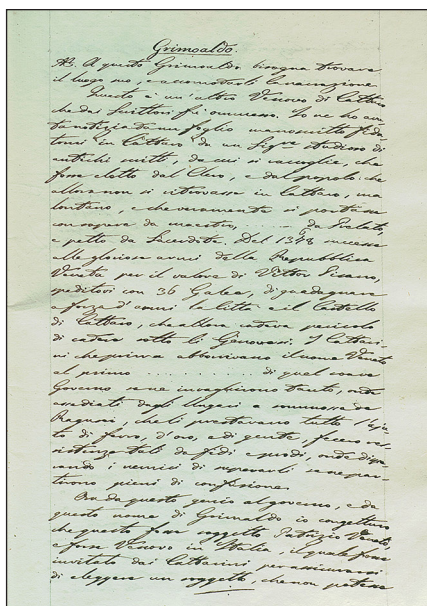 Grimoaldo.
NB. A questo Grimoaldo bisogna trovare
il luogo suo, e accomodarli la narrazione
Questo è un'altro Vescovo di Cattaro
che dai Scrittori fù ommesso. Io ne ho au-
ta notizia da un foglio manoscritto feda-
tomi in Cattaro da un Sigre studioso di
antichi scritti, da cui si raccoglie, che
fosse eletto dal Clero, e dal popolo, che
allora non si ritrovasse in Cattaro, ma
lontano, e che veramente si portasse
con opere da maestro, ...... da Prelato,
e petto da Sacerdote. Del 1378 successe
alle gloriose armi della Repubblica
Veneta per il valore di Vittor Pisano,
speditovi con 36 Galee, di guadagnare
a forza d'armi la Città e il Castello
di Cattaro, che allora cadeva pericolo
di cedere sotto li Genovesi. I Cattari-
ni che prima abborrivano il nome Veneto
al primo .......... di quel soave
Governo se ne invaghirono tanto, che
assediati dagli Ungari a commossa de
Ragusei, che li prestavano tutto l'aju-
to di ferro, d'oro, e di gente, fecero re-
sistenza tali da fidi e prodi, che dispe-
rando i nemici di superarli se ne par-
tirono pieni di confusione.
Or da questo genio al governo, e da
questo nome di Grimoaldo io congetturo
che questo fosse soggetto Patrizio Veneto,
e forse Vescovo in Italia, il quale fosse
invitato dai Cattarini per assicurarsi
di eleggere un soggetto, che non potesse